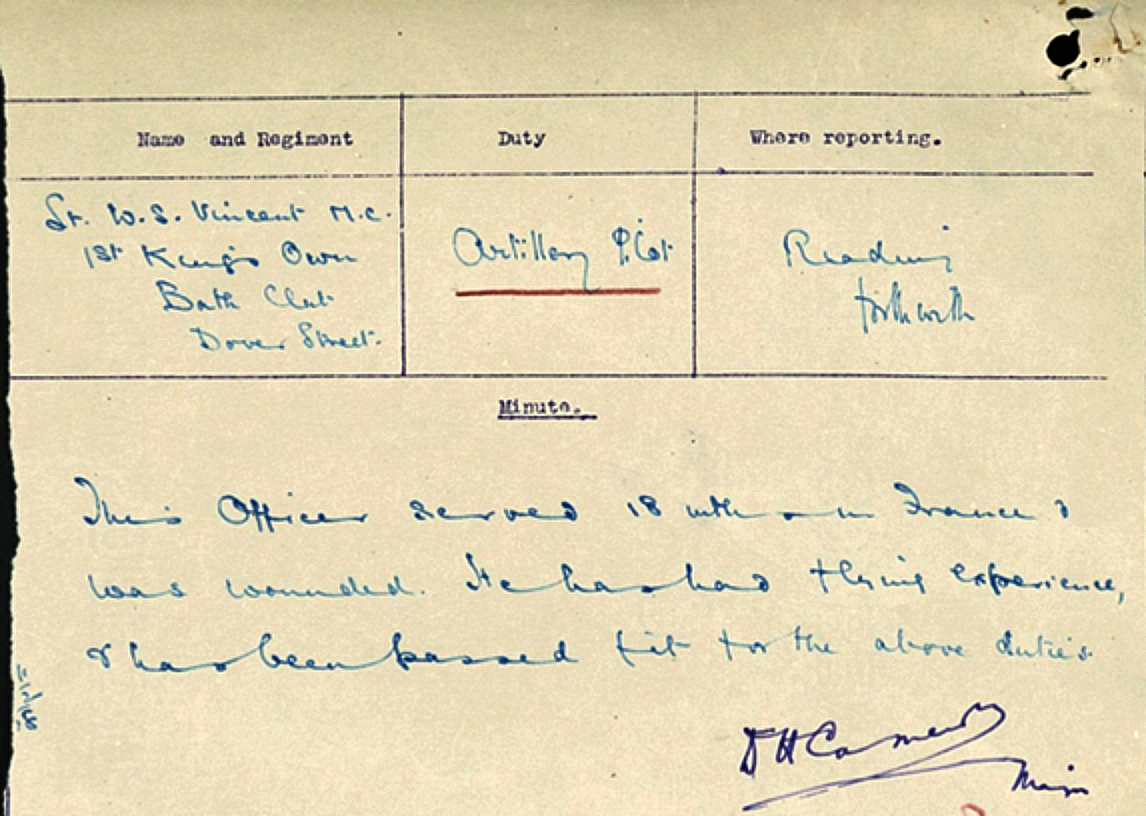 Name and Regiment
Duty
Where reporting.
Lt. W.S. Vincent M.C.
1st King's Own
Bath Club
Dover Street.
Artillery Pilot
Reading
forthwith
Minute.
This Officer served 18 mths in France &
was wounded. He has had flying experience,
& has been passed fit for the above duties.
D H
Major